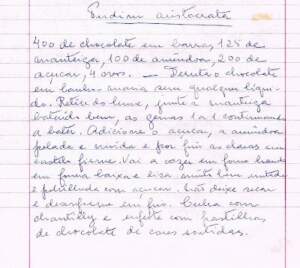 Pudim aristocrata
400 de chocolate em barras, 125 de
manteiga, 100 de amêndoa, 200 de
açucar, 4 ovos. — Derreta o chocolate
em banho-maria sem qualquer líqui-
do. Retire do lume, junte a manteiga
batendo bem, as gemas 1 a 1 continuando
a bater. Adicione o açucar, a amêndoa
pelada e moida e por fim as claras em
castelo firme. Vai a cozer em forno brando
em forma baixa e lisa muito bem untada
e polvilhada com açucar. Não deixe secar
e desenforme em frio. Cubra com
chantilly e enfeite com pastilhas
de chocolate de cores sortidas.